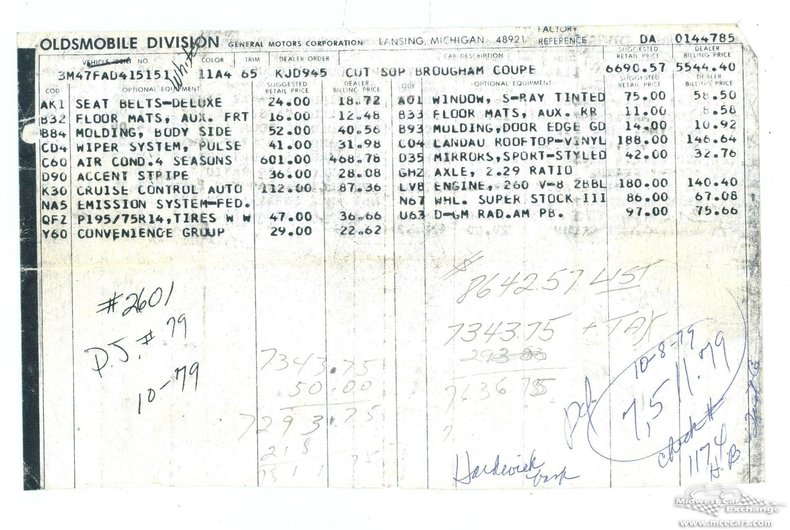 FACTORY
OLDSMOBILE DIVISION GENERAL MOTORS CORPORATION LANSING, MICHIGAN 48921 REFERENCE DA 0144785
VEHICLE IDENT NO COLOR TRIM DEALER ORDER CAR DESCRIPTION SUGGESTED RETAIL PRICE DEALER BILLING PRICE
White
3M47FAD415151 11A4 65 KJD945 CUT SUP BROUGHAM COUPE 6690.57 5544.40
COD OPTIONAL EQUIPMENT SUGGESTED RETAIL PRICE DEALER BILLING PRICE COD OPTIONAL EQUIPMENT SUGGESTED RETAIL PRICE DEALER BILLING PRICE
AK1 SEAT BELTS-DELUXE 24.00 18.72 A01 WINDOW, S-RAY TINTED 75.00 58.50
B32 FLOOR MATS, AUX. FRT 16.00 12.48 B33 FLOOR MATS, AUX. RR 11.00 8.58
B84 MOLDING, BODY SIDE 52.00 40.56 B93 MULDING,DOOR EDGE GD 14.00 10.92
CD4 WIPER SYSTEM, PULSE 41.00 31.98 C04 LANDAU ROOFTOP-VINYL 188.00 146.64
C60 AIR COND.4 SEASONS 601.00 468.78 D35 MIRRORS,SPORT-STYLED 42.00 32.76
D90 ACCENT STRIPE 36.00 28.08 GH2 AXLE, 2.29 RATIO
K30 CRUISE CONTROL AUTO 112.00 87.36 LV8 ENGINE, 260 V-8 2BBL 180.00 140.40
NA5 EMISSION SYSTEM-FED. N67 WHL. SUPER STOCK III 86.00 67.08
QFZ P195/75R14,TIRES W W 47.00 36.66 U63 D-GM RAD.AM PB. 97.00 75.66
Y60 CONVENIENCE GROUP 29.00 22.62
$ 8642.57 LIST
#2601
7343.75 + TAX
D.J. # 79
293.00
10-79
7636 75
7343.75
50.00
7293.75
215
7511 75
10-8-79
pd.
7,511.79
check #
1174
H.B
Hardwick